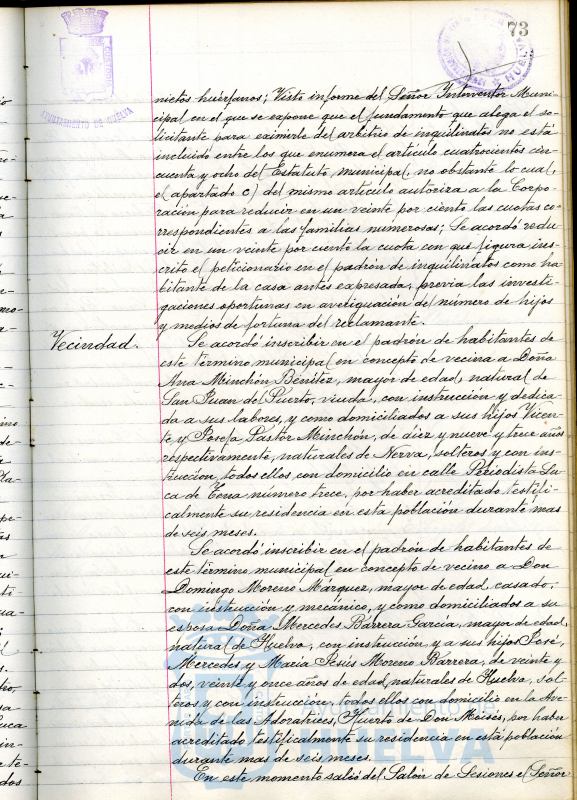 73
AYUNTAMIENTO DE HUELVA
nietos huérfanos; Visto informe del Señor Interventor Muni-
cipal en el que se expone que el fundamento que alega el so-
licitante para eximirle del arbitrio de inquilinatos no está
incluido entre los que enumera el artículo cuatrocientos cin-
cuenta y ocho del Estatuto municipal, no obstante lo cual,
el apartado c) del mismo artículo autoriza a la Corpo-
ración para reducir en un veinte por ciento las cuotas co-
rrespondientes a las familias numerosas; Se acordó redu-
cir en un veinte por ciento la cuota con que figura ins-
crito el peticionario en el padrón de inquilinatos como ha-
bitante de la casa antes expresada, previa las investi-
gaciones oportunas en averiguación del número de hijos
y medios de fortuna del reclamante.
Vecindad.
Se acordó inscribir en el padrón de habitantes de
este término municipal en concepto de vecina a Doña
Ana Minchón Benítez, mayor de edad, natural de
San Juan del Puerto, viuda, con instrucción y dedica-
da a sus labores, y como domiciliados a sus hijos Vicen-
te y Josefa Pastor Minchón, de diez y nueve y trece años
respectivamente, naturales de Nerva, solteros y con ins-
trucción, todos ellos con domicilio en calle Periodista Lu-
ca de Tena número trece, por haber acreditado testifi-
calmente su residencia en esta población durante mas
de seis meses.
Se acordó inscribir en el padrón de habitantes de
este término municipal en concepto de vecino a Don
Domingo Moreno Márquez, mayor de edad, casado,
con instrucción y mecánico, y como domiciliados a su
esposa Doña Mercedes Barrera García, mayor de edad,
natural de Huelva, con instrucción, y a sus hijos José
Mercedes y María Jesús Moreno Barrera, de veinte y
dos, veinte y once años de edad, naturales de Huelva, sol-
teros y con instrucción, todos ellos con domicilio en la Ave-
nida de las Adoratrices, Huerto de Don Moisés, por haber
acreditado testificalmente su residencia en esta población
durante mas de seis meses.
En este momento salió del Salón de Sesiones el Señor
Ayuntamiento de
HUELVA